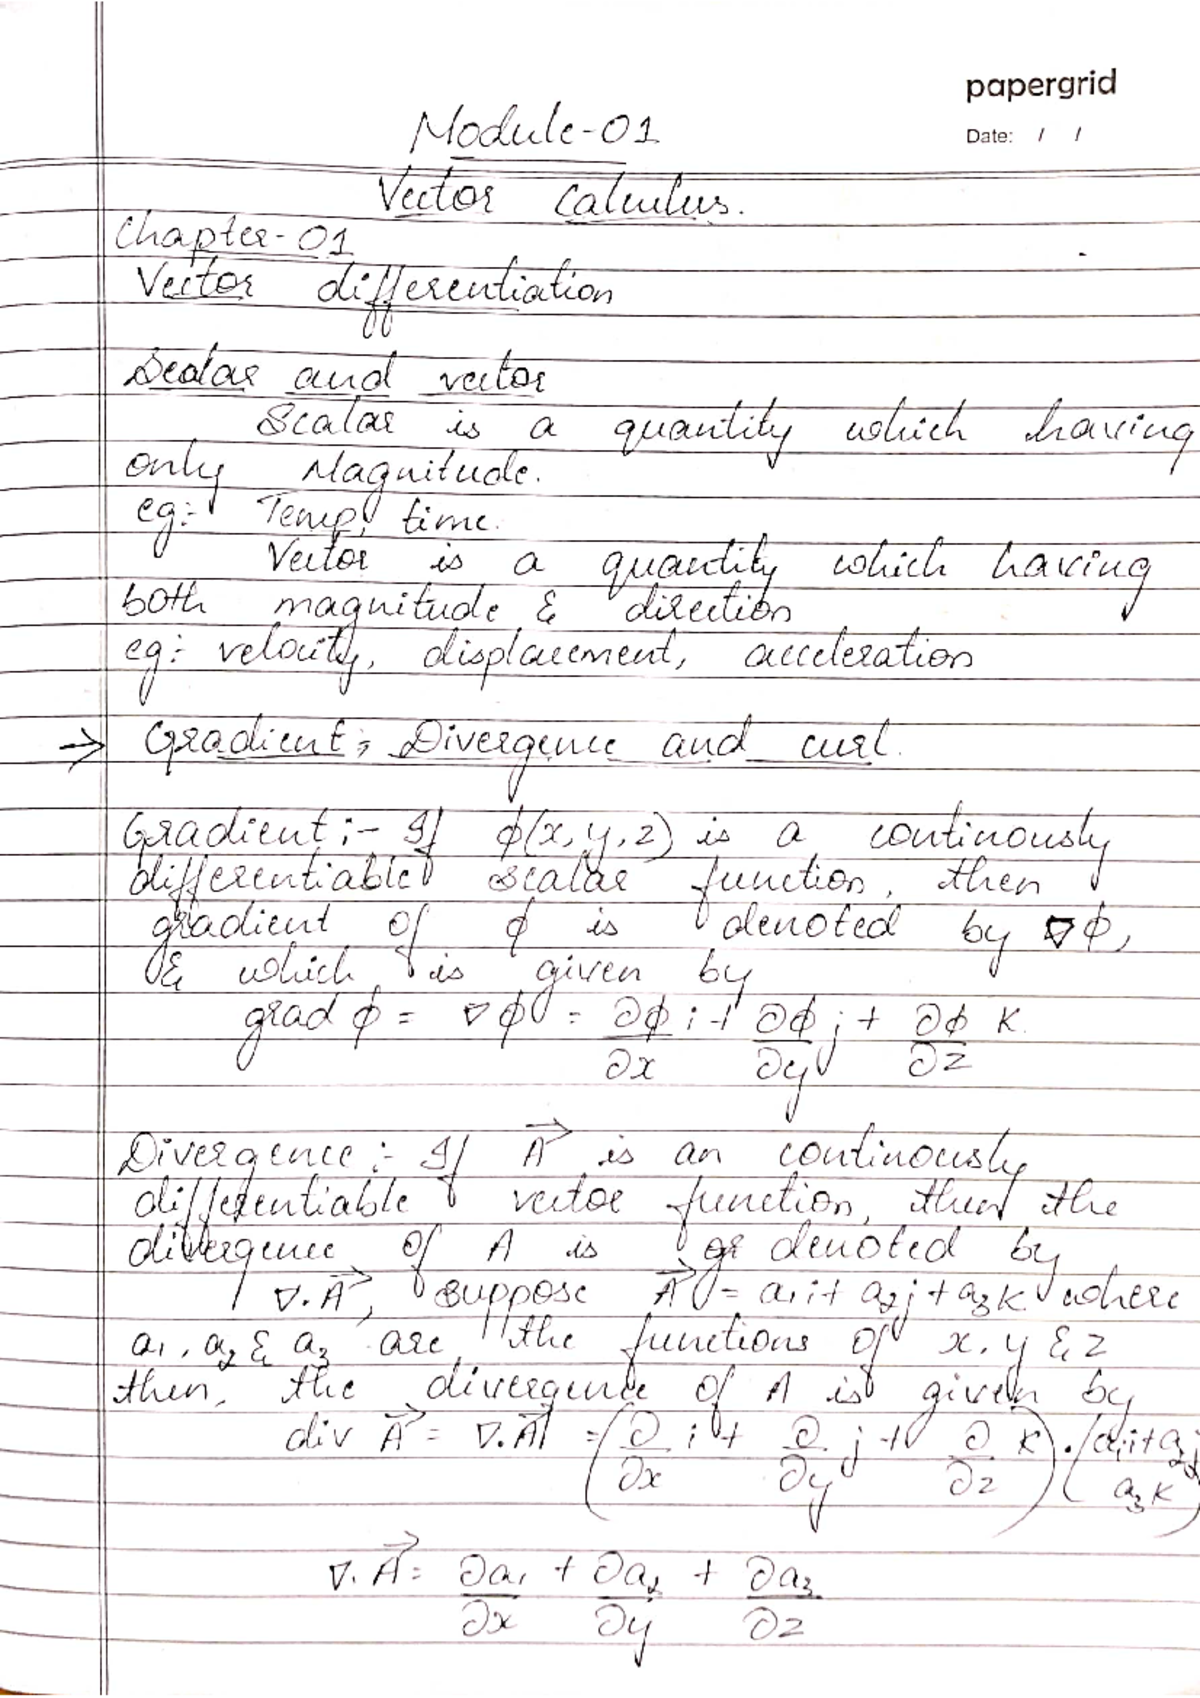 papergrid
Date: / /
Module-01
Vector Calculus.
Chapter-01
Vector differentiation
Scalar and vector
Scalar is a quantity which having
only Magnitude.
eg:- Temp, time.
Vector is a quantity which having
both magnitude & direction
eg:- velocity, displacement, acceleration
→ Gradient, Divergence and curl.
Gradient :- If ϕ(x, y, z) is a continously
differentiable scalar function, then
gradient of ϕ is denoted by ∇ϕ,
& which is given by
grad ϕ = ∇ϕ = ∂ϕ/∂x i + ∂ϕ/∂y j + ∂ϕ/∂z k.
Divergence :- If A⃗ is an continously
differentiable vector function, then the
divergence of A is or denoted by
∇.A⃗, suppose A⃗ = a₁i + a₂j + a₃k where
a₁, a₂ & a₃ are the functions of x, y & z
then, the divergence of A is given by
div A⃗ = ∇.A⃗ = (∂/∂x i + ∂/∂y j + ∂/∂z k) . (a₁i + a₂j
a₃k)
∇.A⃗ = ∂a₁/∂x + ∂a₂/∂y + ∂a₃/∂z